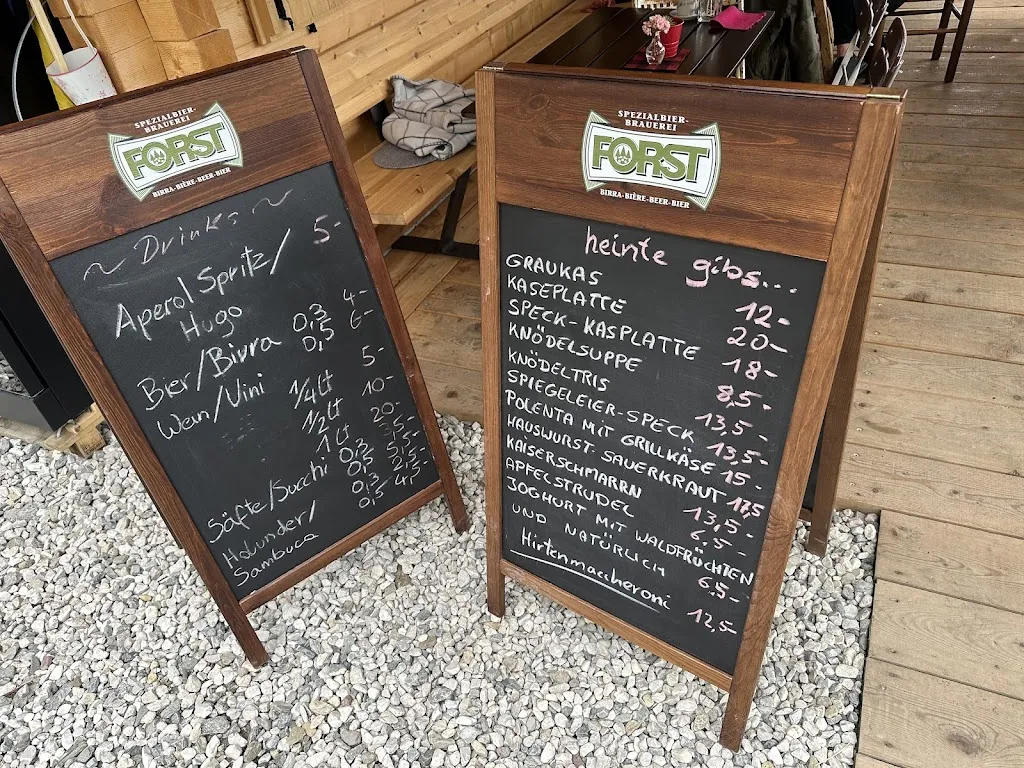 SPEZIALBIER-
BRAUEREI
FORST
BIRRA-BIÈRE-BEER-BIER
~ Drinks ~
Aperol Spritz/ 5-
Hugo
Bier/Birra 0,3 4-
0,5 6-
Wein/Vini 1/4lt 5-
1/2lt 10-
1lt 20-
Säfte/Succhi 0,3
0,5
Holunder/ 0,3
Sambuca 0,5
SPEZIALBIER-
BRAUEREI
FORST
BIRRA-BIÈRE-BEER-BIER
heinte gibs...
GRAUKAS 12-
KASEPLATTE 20-
SPECK-KASPLATTE 18-
KNÖDELSUPPE 8,5-
KNÖDELTRIS 13,5-
SPIEGELEIER-SPECK 13,5-
POLENTA MIT GRILLKÄSE 15-
HAUSWURST-SAUERKRAUT 17,5
KAISERSCHMARRN 13,5-
APFELSTRUDEL 6,5-
JOGHURT MIT WALDFRÜCHTEN
UND NATÜRLICH 6,5-
Hirtenmaccheroni 12,5-